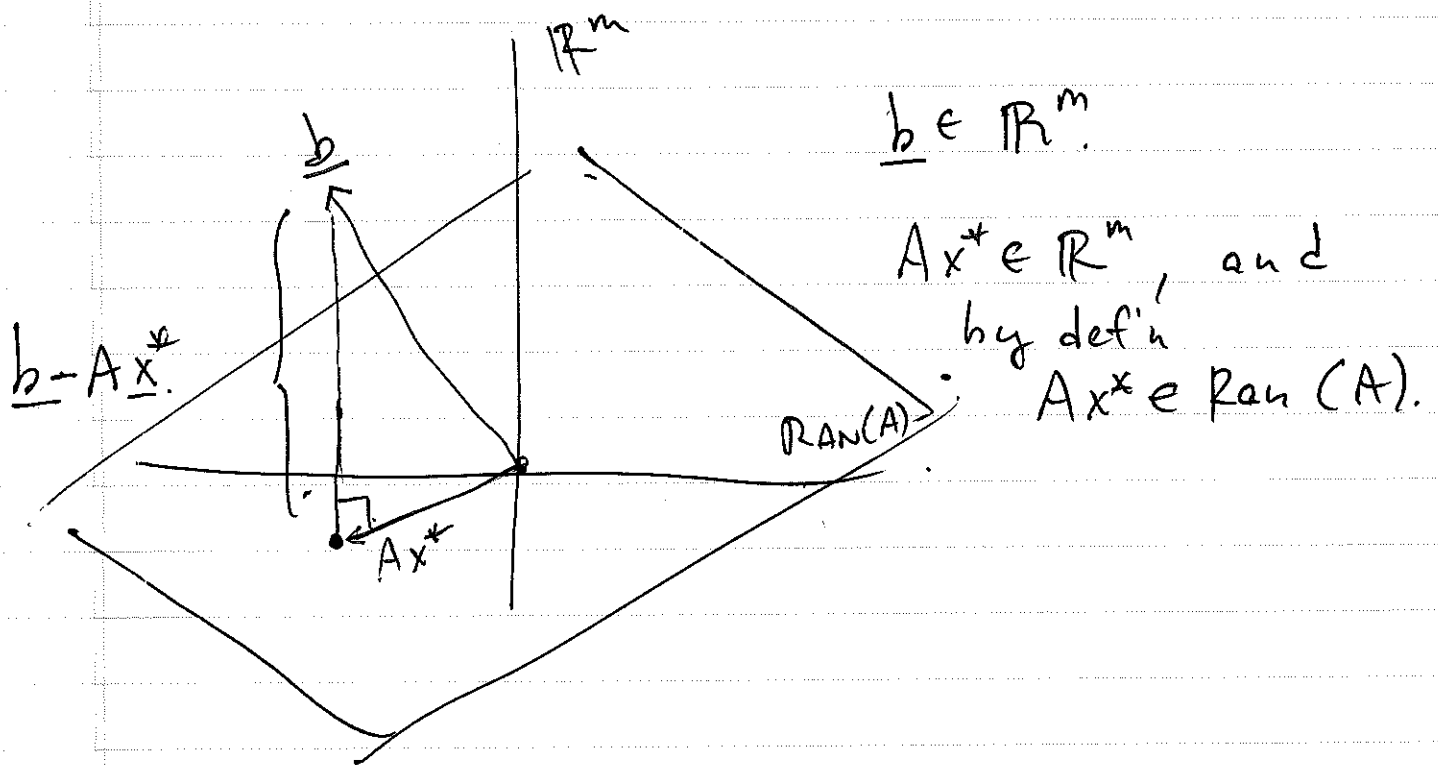 ℝᵐ
b
b ∈ ℝᵐ.
Ax* ∈ ℝᵐ, and
by def'n
Ax* ∈ Ran (A).
b - Ax*.
RAN(A)
Ax*